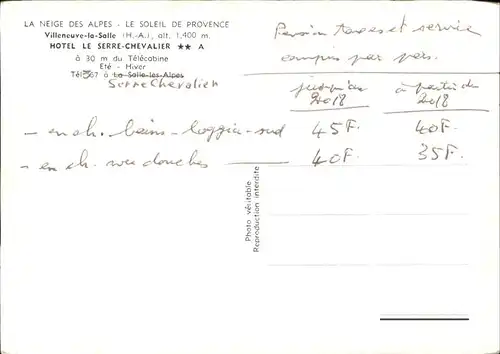 LA NEIGE DES ALPES - LE SOLEIL DE PROVENCE
Villeneuve-la-Salle (H.-A.), alt. 1.400 m.
HOTEL LE SERRE-CHEVALIER ★★ A
à 30 m du Télécabine
Eté - Hiver
Tél 367 à La Salle-les-Alpes
Serre Chevalier
Pension taxes et service
compris par pers.
jusqu'au à partir du
20/8 20/8
- en ch. bains - loggia - sud 45F. 40F.
- en ch. douches 40F. 35F.
Photo véritable
Reproduction interdite